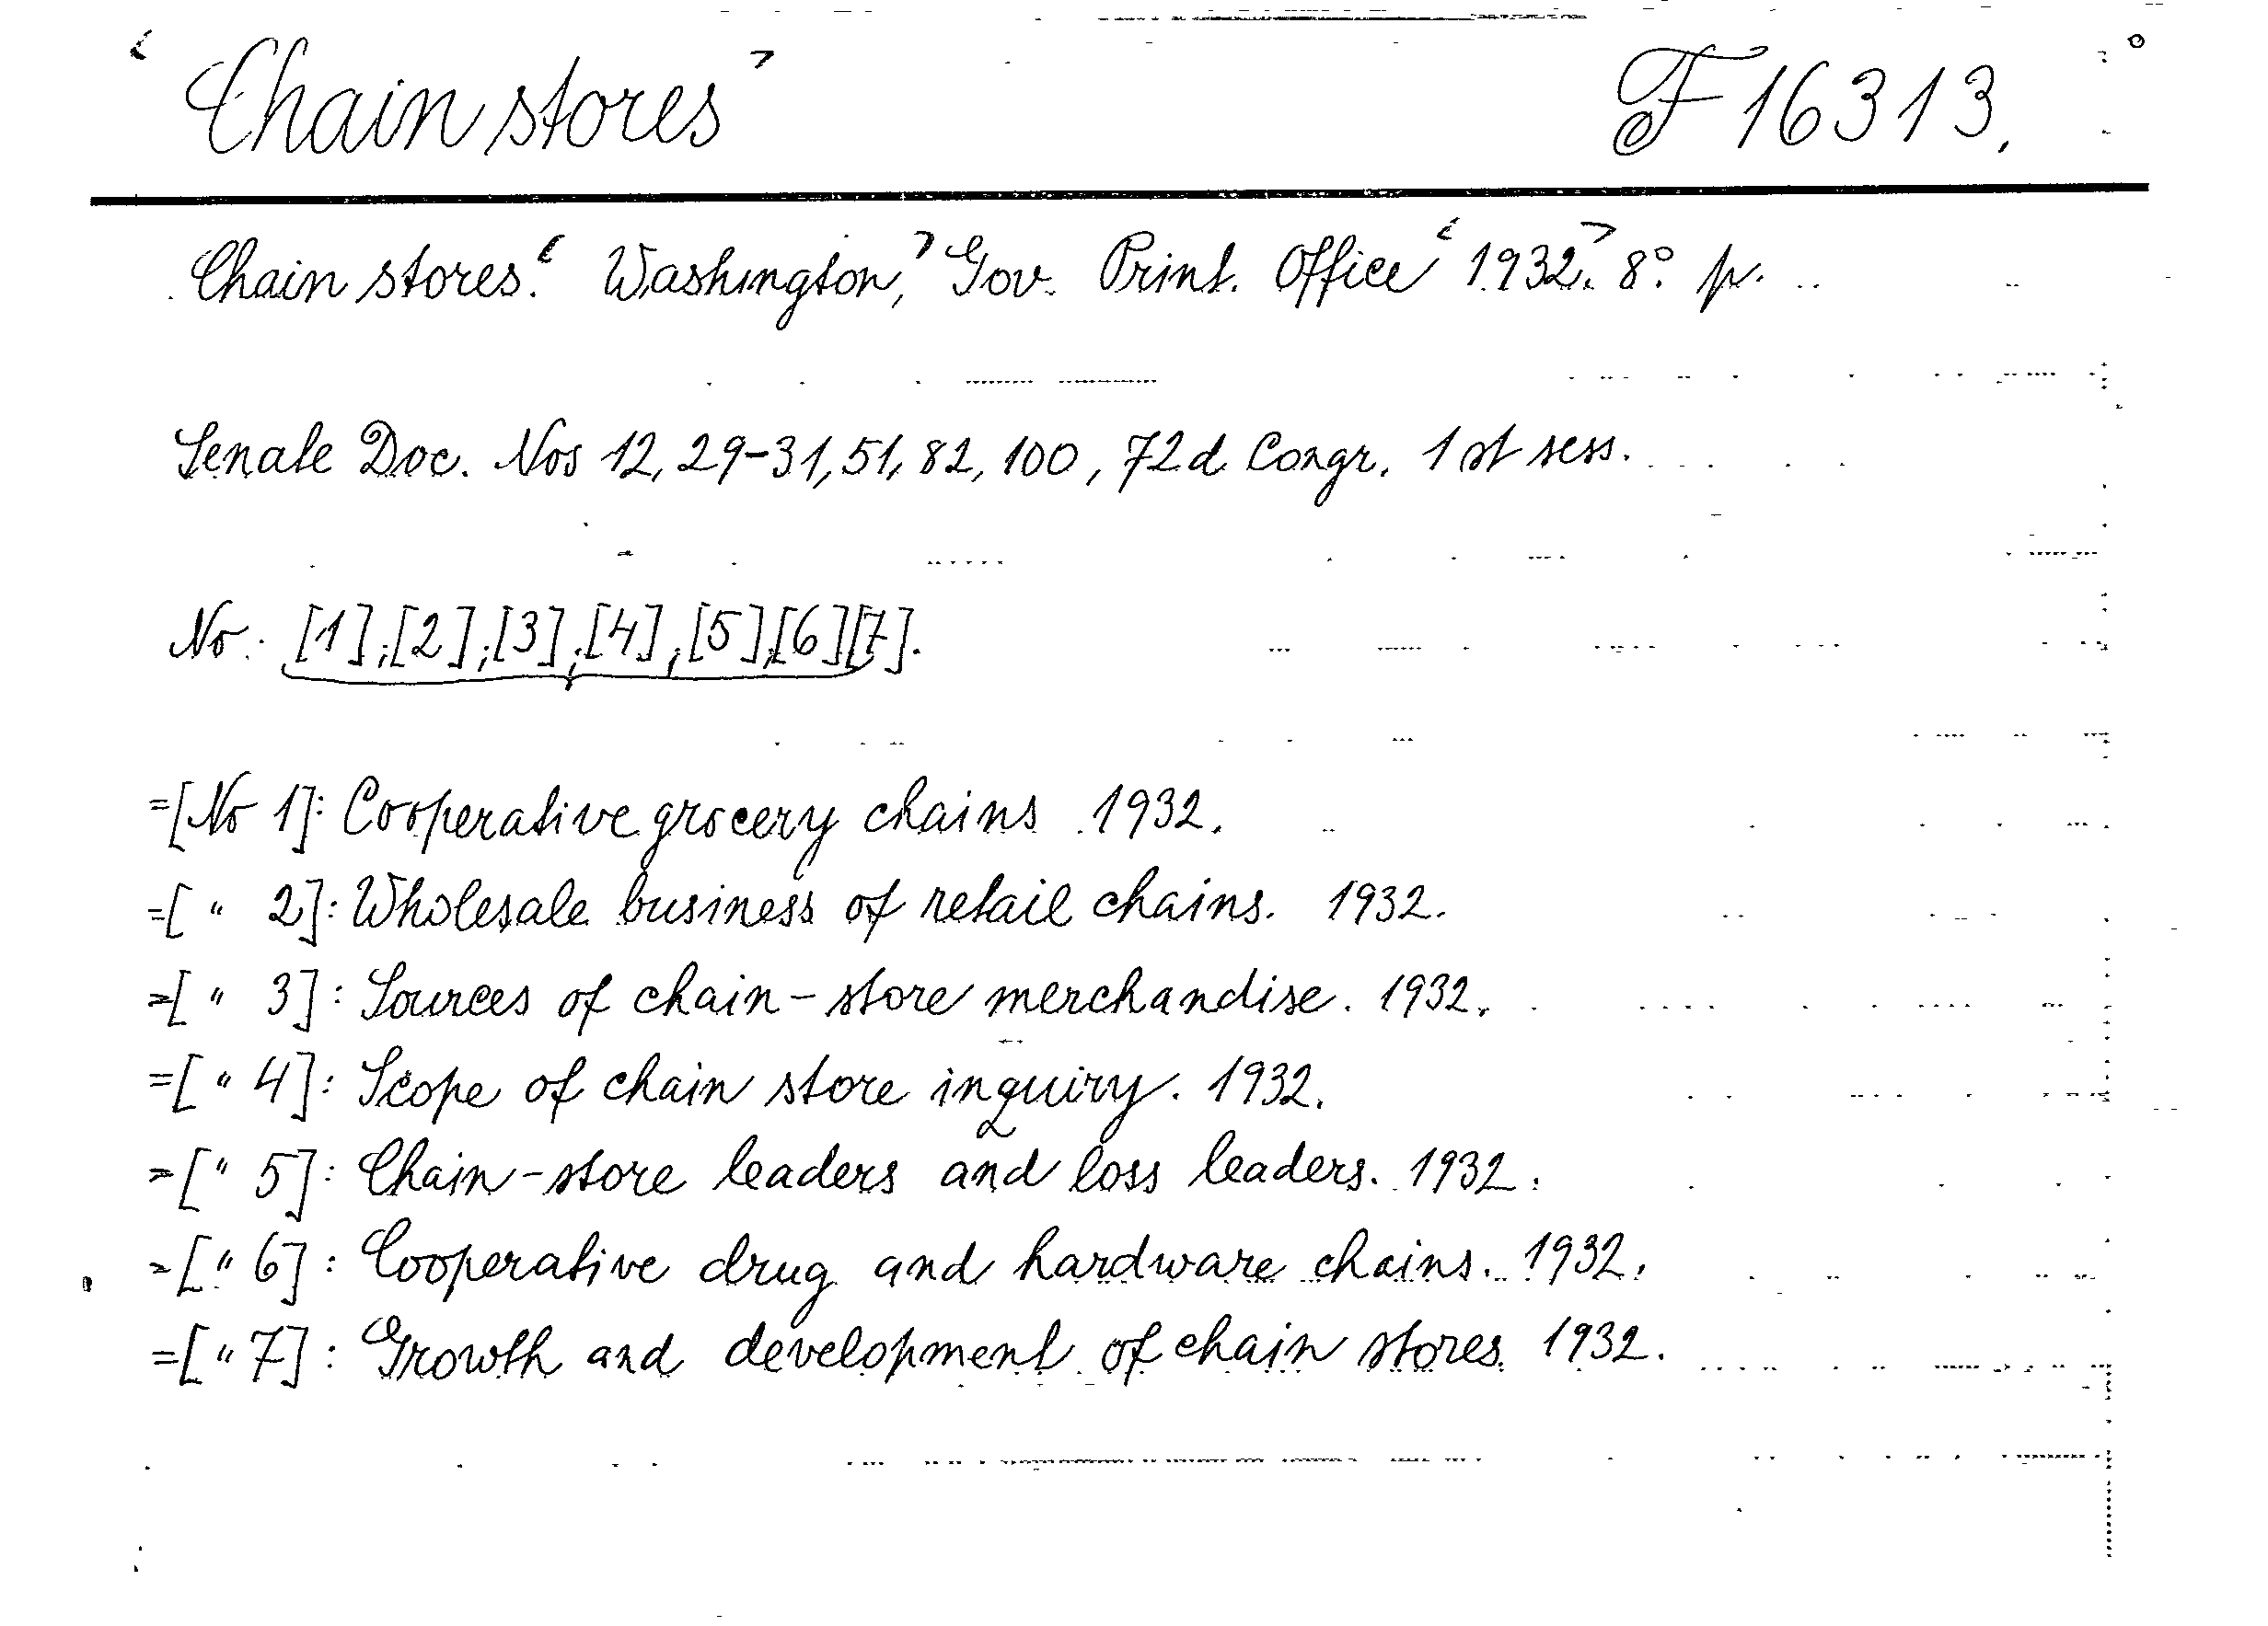 ‹Chain stores› F 16313.
Chain stores.‹ Washington,› Gov. Print. Office ‹1932.› 8° p.
Senate Doc. Nos 12, 29-31, 51, 82, 100, 72d Congr. 1st sess.
No. [1];[2];[3];[4];[5];[6][7].
=[No 1]: Cooperative grocery chains 1932.
=[ " 2]: Wholesale business of retail chains. 1932.
=[ " 3]: Sources of chain-store merchandise. 1932.
=[ " 4]: Scope of chain store inquiry. 1932.
=[ " 5]: Chain-store leaders and loss leaders. 1932.
=[ " 6]: Cooperative drug and hardware chains. 1932.
=[ " 7]: Growth and development of chain stores. 1932.